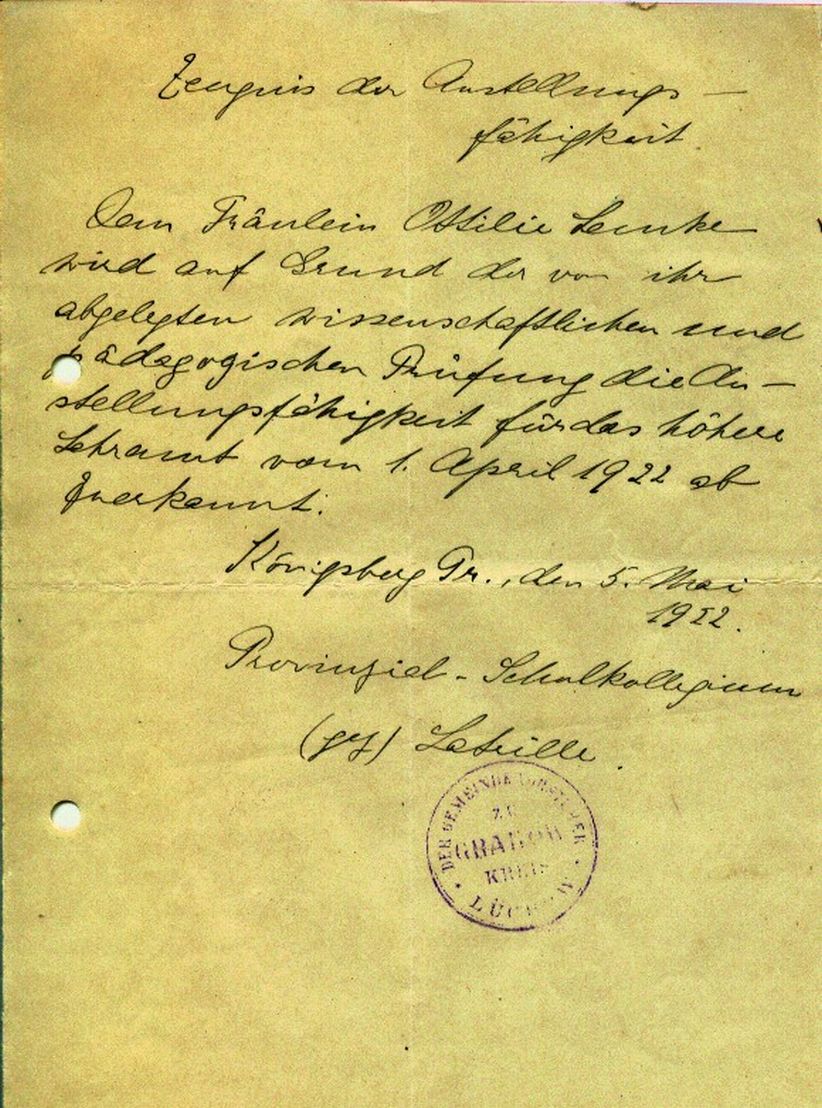 Zeugnis der Anstellungs-
fähigkeit.
Dem Fräulein Ottilie Lemke
wird auf Grund der von ihr
abgelegten wissenschaftlichen und
pädagogischen Prüfung die An-
stellungsfähigkeit für das höhere
Lehramt vom 1. April 1922 ab
zuerkannt.
Königsberg Pr., den 5. Mai
1922.
Provinzial-Schulkollegium
(gez) Latrille.
DER GEMEINDEVORSTEHER
ZU
GRABOW
KREIS
LÜCHOW